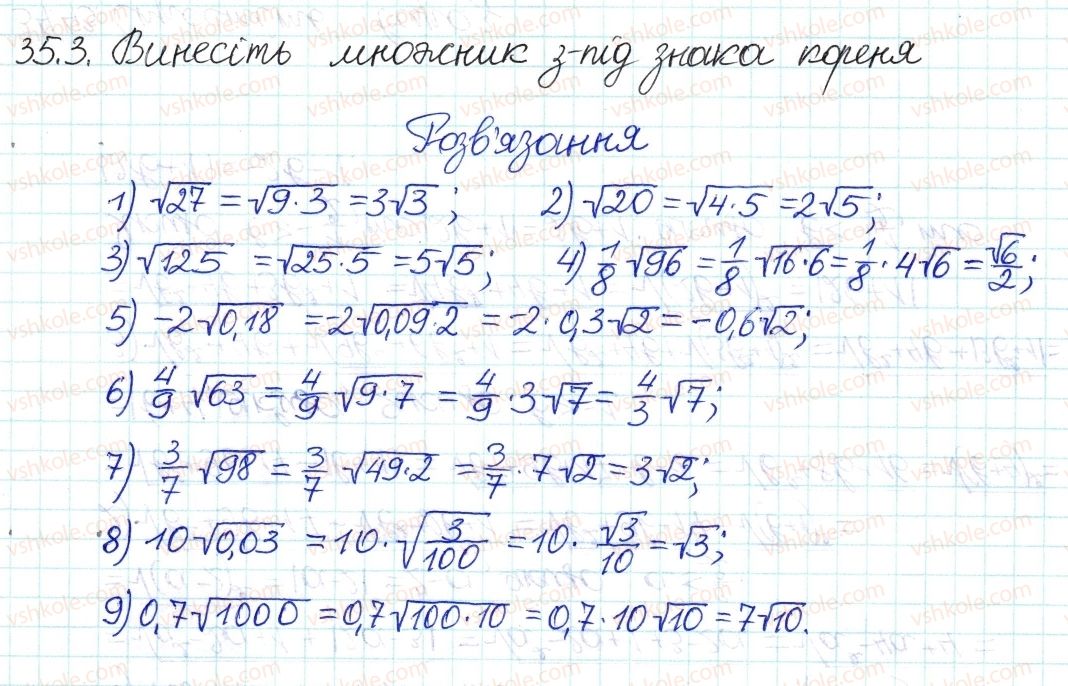 35.3. Винесіть множник з-під знака кореня
Розв'язання
1) √27 = √9·3 = 3√3; 2) √20 = √4·5 = 2√5;
3) √125 = √25·5 = 5√5; 4) 1/8 √96 = 1/8 √16·6 = 1/8 · 4√6 = √6/2;
5) -2√0,18 = -2√0,09·2 = -2·0,3√2 = -0,6√2;
6) 4/9 √63 = 4/9 √9·7 = 4/9 · 3√7 = 4/3 √7;
7) 3/7 √98 = 3/7 √49·2 = 3/7 · 7√2 = 3√2;
8) 10√0,03 = 10·√3/100 = 10· √3/10 = √3;
9) 0,7√1000 = 0,7√100·10 = 0,7·10√10 = 7√10.